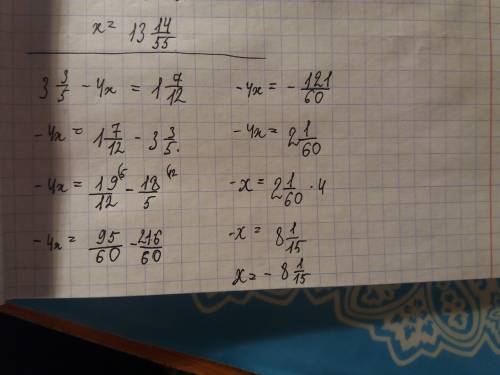 x = 13 14/55
3 3/5 - 4x = 1 7/12
-4x = 1 7/12 - 3 3/5.
-4x = 19/12 (5 - 18/5 (12
-4x = 95/60 - 216/60
-4x = - 121/60
-4x = 2 1/60
-x = 2 1/60 · 4
-x = 8 1/15
x = - 8 1/15